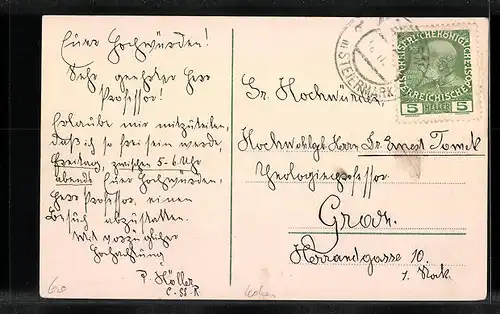 Euer Hochwürden!
Sehr geehrter Herr
Professor!
Erlaube mir mitzuteilen,
daß ich so frei sein werde,
Freitag, zwischen 5-6 Uhr
abends Euer Hochwürden,
Herr Professor, einen
Besuch abzustatten.
Mit vorzüglicher
Hochachtung
P. Höller
C.SS.R
Sr. Hochwürden
Hochwohlgeb. Herrn Dr Ernest Tomek
Theologieprofessor
Graz.
Herrandgasse 10.
1. Stock.
STEIERMARK
KAISERLICHEKÖNIGLICHE
ÖSTERREICHISCHE
5 HELLER 5